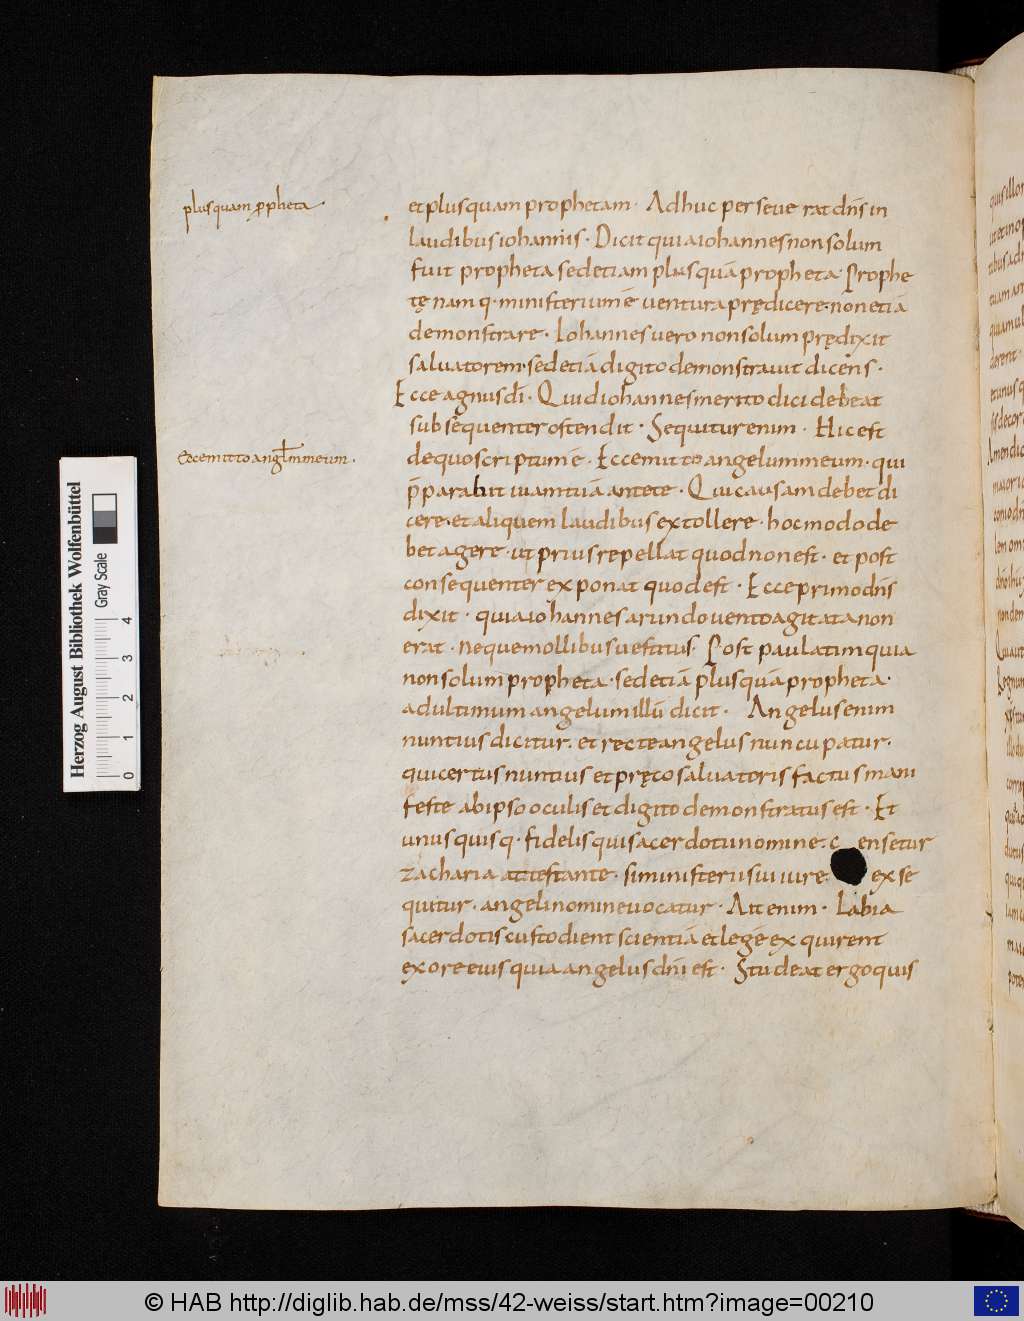 plusquam ꝓpheta.
et plusquam prophetam. Adhuc perseuerat dn̄s in
laudibus iohannis. Dicit quia iohannes non solum
fuit propheta sed etiam plusquā propheta. Prophe
tę nam q. ministerium ē uentura prędicere. non etiā
demonstrare. Iohannes uero non solum prędixit
saluatorem. sed etiā digito demonstrauit dicens.
Ecce agnus dī. Quid iohannes merito dici debeat
subsequenter ostendit. Sequitur enim. Hic est
Ecce mitto angl̄m meum.
de quo scriptum ē. Ecce mitto angelum meum. qui
p̄parabit uiam tuā ante te. Qui causam debet di
cere. et aliquem laudibus extollere. hoc modo de
bet agere. ut prius repellat quod non est. et post
consequenter exponat quod est. Ecce primo dn̄s
dixit. quia iohannes arundo uento agitata non
erat. neque mollibus uestitus. Post paulatim quia
non solum propheta. sed etiā plusquā propheta.
ad ultimum angelum illū dicit. Angelus enim
nuntius dicitur. et recte angelus nuncupatur.
qui certus nuntius et pręco saluatoris factus mani
feste ab ipso oculis et digito demonstratus est. Et
unusquisq. fidelis qui sacerdotii nomine censetur
zacharia attestante. si ministerii sui iure exse
quitur. angeli nomine uocatur. Ait enim. Labia
sacerdotis custodient scientiā et legē exquirent
ex ore eius quia angelus dn̄i est. Studeat ergo quis
Herzog August Bibliothek Wolfenbüttel
Gray Scale
0 1 2 3 4
© HAB http://diglib.hab.de/mss/42-weiss/start.htm?image=00210